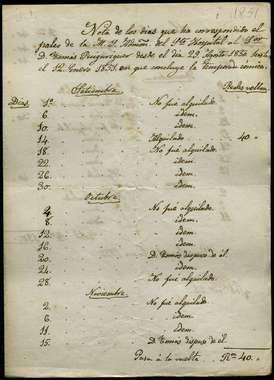 1851
Nota de los dias que ha correspondido el
palco de la M. I. Admon. del Sto. Hospital al Sor.
D. Tomás Puigoriguer desde el dia 29 Agosto 1850 hasta
el 12 Enero 1851 en que concluye la temporada cómica.
Setiembre. Reales vellon
Dias 1º. No fué alquilado.
6. idem.
10. idem.
14. Alquilado 40
18. No fué alquilado.
22. idem.
26. idem.
30. idem.
Octubre.
4. No fué alquilado.
8. idem.
12. idem.
16. idem.
20. D. Tomás dispuso de él.
24. idem.
28. No fué alquilado.
Noviembre.
2. No fué alquilado.
6. idem.
11. idem.
15. D. Tomás dispuso de él.
Pasa á la vuelta Rs. 40.